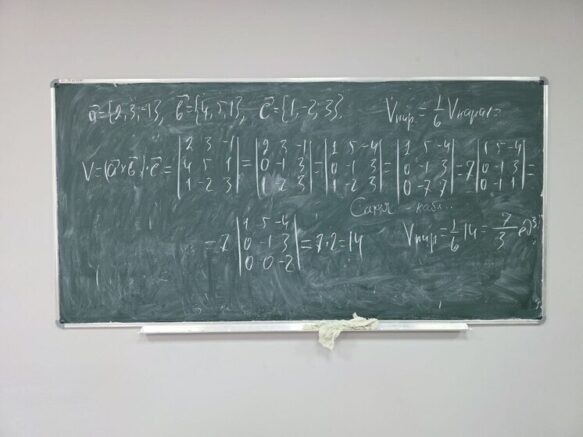 a⃗={2,3,-1}, b⃗={4,5,1}, c⃗={1,-2,3}. Vпир.=1/6 Vпарал=
V=(a⃗×b⃗)·c⃗= |2 3 -1; 4 5 1; 1 -2 3| = |2 3 -1; 0 -1 3; 1 -2 3| = |1 5 -4; 0 -1 3; 1 -2 3| = |1 5 -4; 0 -1 3; 0 -7 7| = 7 |1 5 -4; 0 -1 3; 0 -1 1| =
= 7 |1 5 -4; 0 -1 3; 0 0 -2| = 7·2 = 14 Vпир=1/6 14 = 7/3 ед³